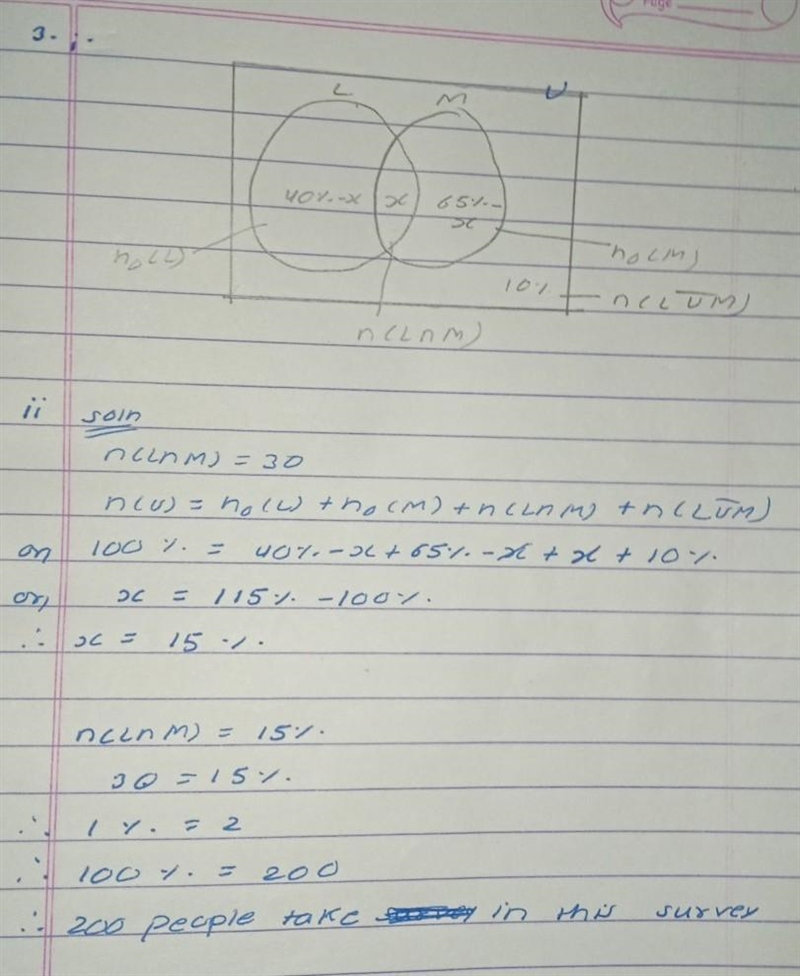 Page
3. i.
L M U
40%-x x 65%-x
n₀(L) n₀(M)
10% n(L̅U̅M̅)
n(LnM)
ii soln
n(LnM) = 30
n(U) = n₀(L) + n₀(M) + n(LnM) + n(L̅U̅M̅)
or, 100 % = 40% - x + 65% - x + x + 10%
or, x = 115% - 100%
∴ x = 15 %
n(LnM) = 15%
30 = 15%
∴ 1 % = 2
∴ 100 % = 200
∴ 200 people take in this survey